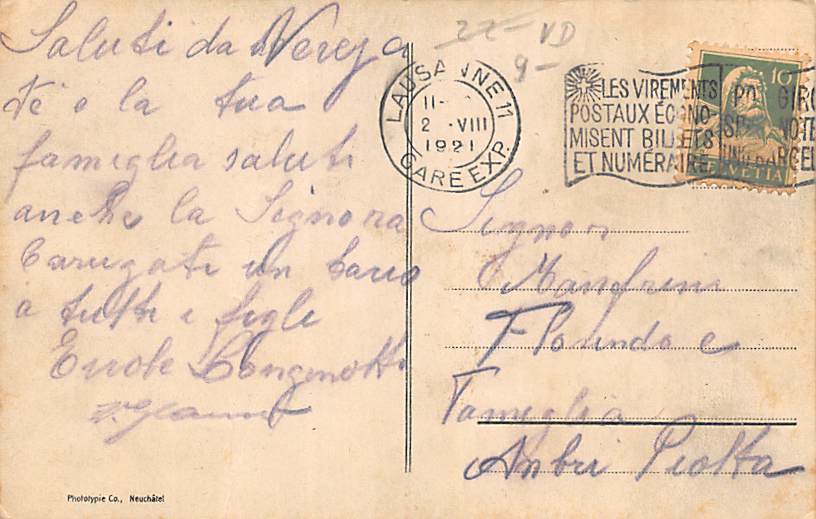 Saluti da Vereya
te e la tua
famiglia saluti
anche la Signora
Carugati un bacio
a tutti i figli
Ercole Longenotti
22- VD
9-
LAUSANNE 11
11-
2 . VIII
1921
GARE EXP.
LES VIREMENTS
POSTAUX ÉCONO-
MISENT BILLETS
ET NUMÉRAIRE
PO GIRO
NOTE
10
HELVETIA
Signor
Manfrini
Floindo e
Famiglia
Ambri Piotta
Phototypie Co., Neuchâtel